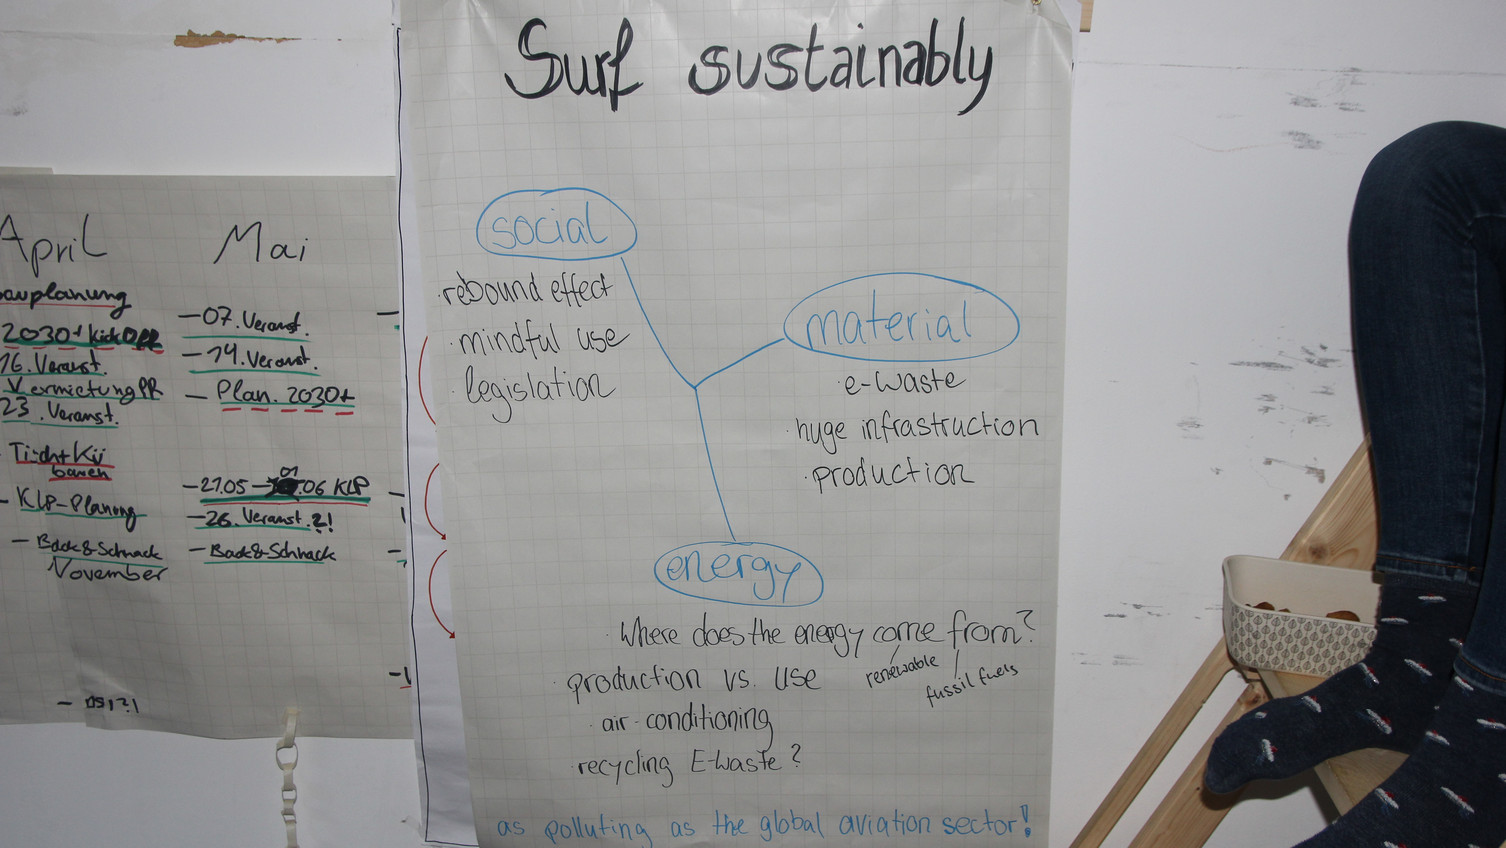 Surf sustainably
social
rebound effect
mindful use
legislation
material
e-waste
huge infrastruction
production
energy
Where does the energy come from?
renewable
fussil fuels
production vs. use
air-conditioning
recycling E-waste?
as polluting as the global aviation sector!
April
bauplanung
2030+ KickOff
16. Veranst.
Vermietung PR
23. Veranst.
bauen
- KLP-Planung
- Back&Schnack
November
Mai
- 07. Veranst.
- 14. Veranst.
- Plan. 2030+
01
- 27.05 - .06 KLP
- 26. Veranst. ?!
- Back&Schnack